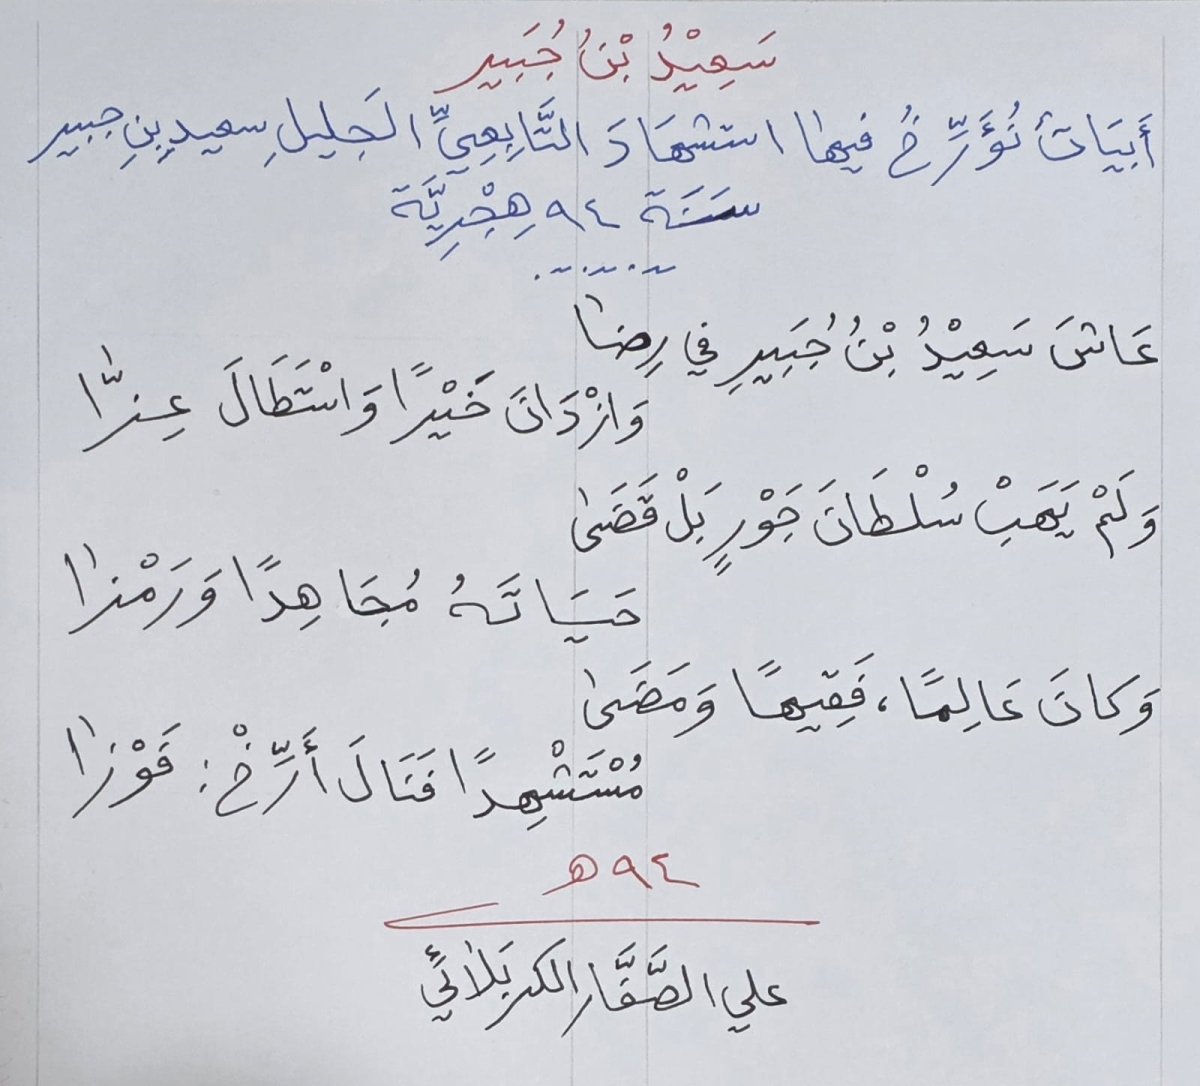 سَعِيْدُ بْنُ جُبَيرٍ
أَبيَاتٌ نُؤَرِّخُ فيها استشهَادَ التَّابِعِيِّ الجَليلِ سعيدِ بنِ جبير
سَنَة ٩٤ هِجْرِيَّة
عَاشَ سَعِيْدُ بْنُ جُبَيرٍ في رِضا
وَازْدَانَ خَيْرًا وَاسْتَطَالَ عِزّا
وَلَمْ يَهَبْ سُلْطَانَ جَوْرٍ بَلْ قَضَى
حَيَاتَهُ مُجَاهِدًا وَرَمْزا
وَكانَ عَالِمًا، فَقِيهًا وَمَضَى
مُسْتَشْهِدًا فَنَالَ أَرِّخْ: فَوْزا
٩٤ هـ
علي الصَّفَّار الكربَلائي